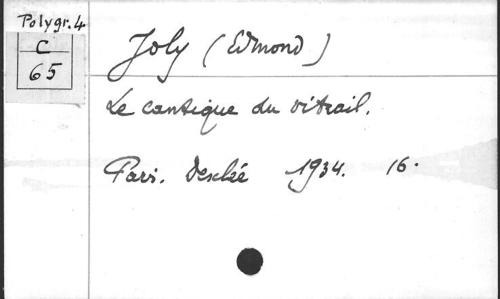 Polygr. 4
C
65
Joly (Edmond)
Le cantique du vitrail.
Paris. 1934. 16.